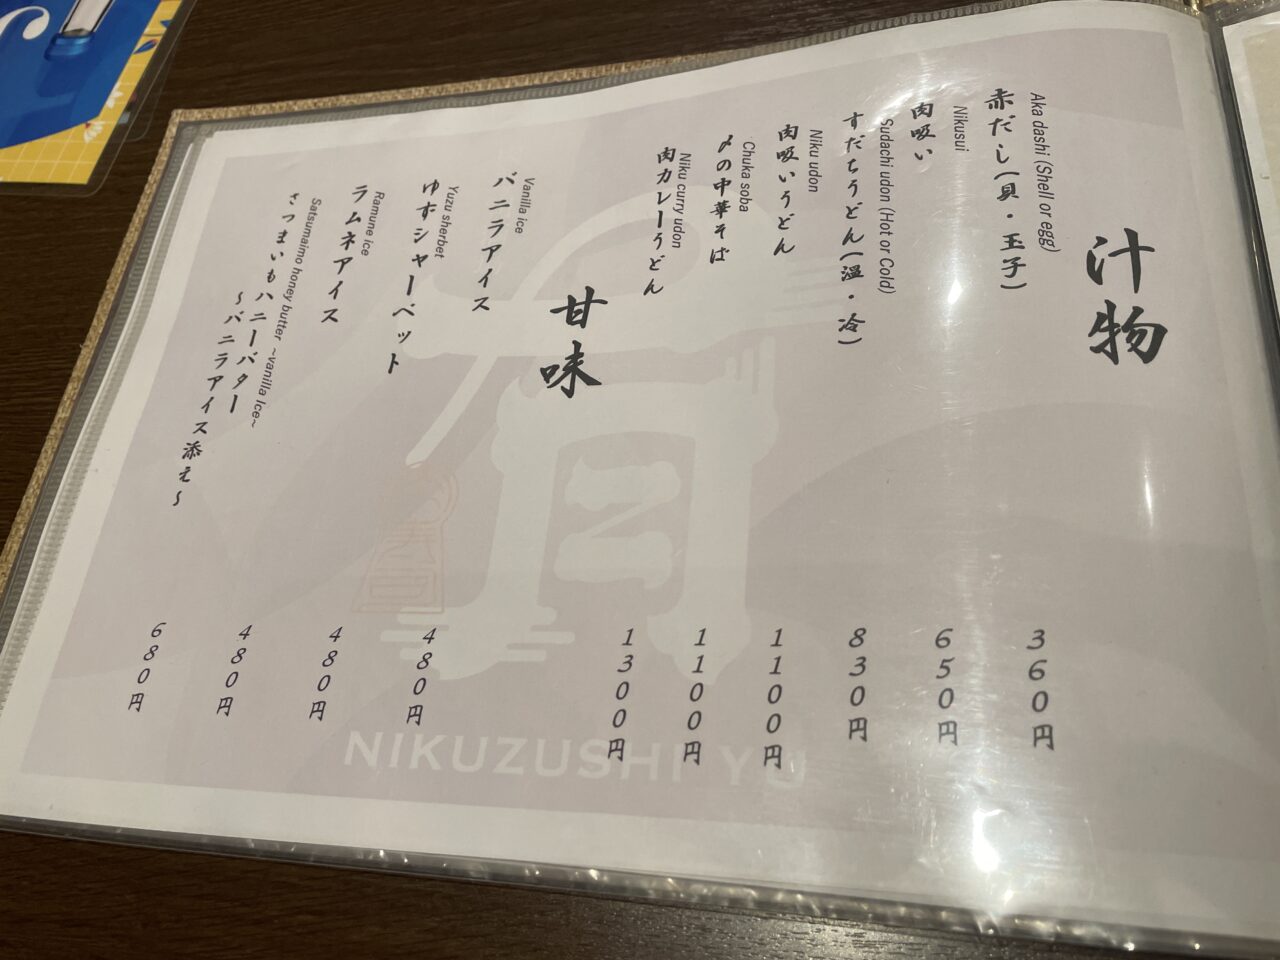 汁物
Aka dashi (Shell or egg)
赤だし(貝・玉子)
360円
Nikusui
肉吸い
650円
Sudachi udon (Hot or Cold)
すだちうどん(温・冷)
830円
Niku udon
肉吸いうどん
1100円
Chuka soba
〆の中華そば
1100円
Niku curry udon
肉カレーうどん
1300円
甘味
Vanilla ice
バニラアイス
480円
Yuzu sherbet
ゆずシャーベット
480円
Ramune ice
ラムネアイス
480円
Satsumaimo honey butter ~vanilla Ice~
さつまいもハニーバター
～バニラアイス添え～
680円
NIKUZUSHI YU